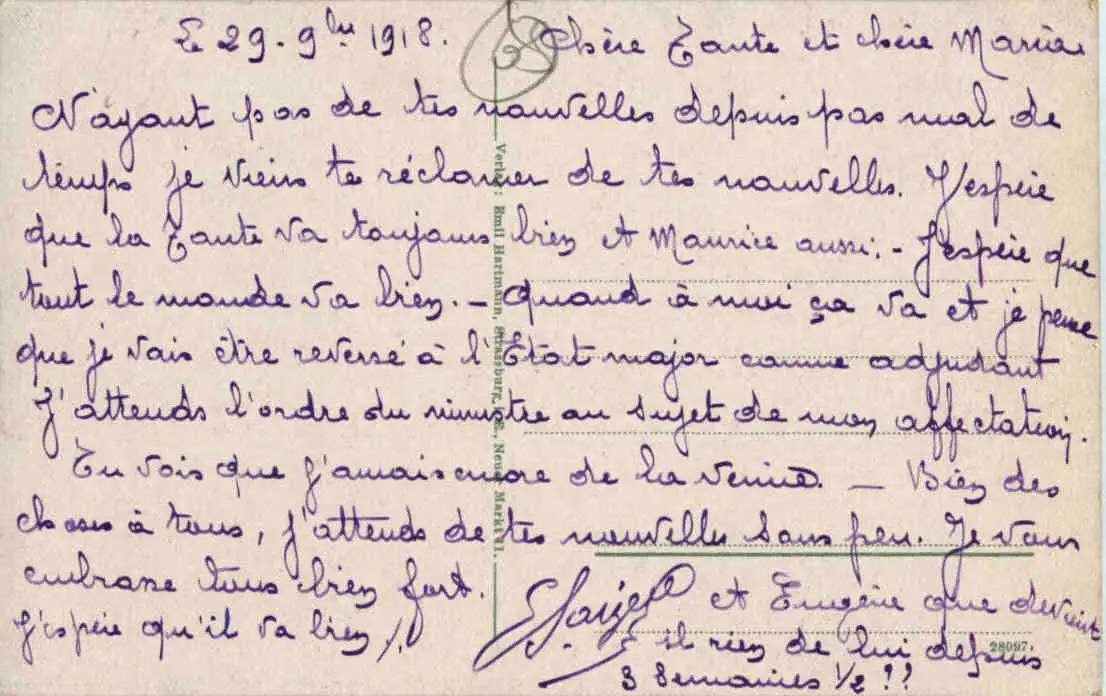 Le 29. 9bre 1918. Chère Tante et chère Marie
N'ayant pas de tes nouvelles depuis pas mal de
temps je viens te réclamer de tes nouvelles. J'espère
que la Tante va toujours bien et Maurice aussi. - J'espère que
tout le monde va bien. - Quand à moi ça va et je pense
que je vais être reversé à l'Etat major comme adjudant
J'attends l'ordre du ministre au sujet de mon affectation.
Tu vois que j'aurais encore de la veine. - Bien des
choses à tous, j'attends de tes nouvelles sous peu. Je vous
embrasse tous bien fort.
et Eugène que devient
J'espère qu'il va bien
il rien de lui depuis
3 Semaines 1/2 ??
Verlag: Emil Hartmann, Strassburg i. E., Neuer Markt 11.
28097